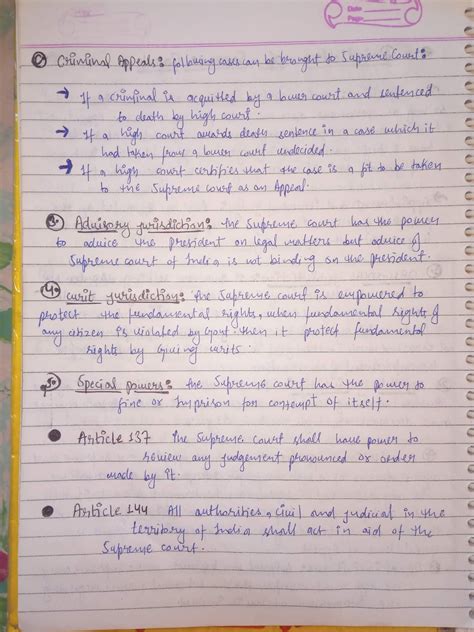 Date
Page
Criminal Appeals: following cases can be brought to Supreme Court:
→ If a criminal is acquitted by a lower court and sentenced
to death by high court.
→ If a high court awards death sentence in a case which it
had taken from a lower court undecided.
→ If a high court certifies that the case is a fit to be taken
to the Supreme court as an Appeal.
3. Advisory jurisdiction: the Supreme court has the power
to advice the president on legal matters but advice of
Supreme court of India is not binding on the president.
4. writ jurisdiction: the Supreme court is empowered to
protect the fundamental rights, when fundamental rights of
any citizen is violated by Govt. then it protect fundamental
rights by Giving writs.
5. Special powers: the Supreme court has the power to
fine or Imprison for contempt of itself.
● Article 137 The Supreme court shall have power to
review any judgement pronounced or order
made by it.
● Article 144 All authorities, Civil and judicial in the
territory of India shall act in aid of the
Supreme court.